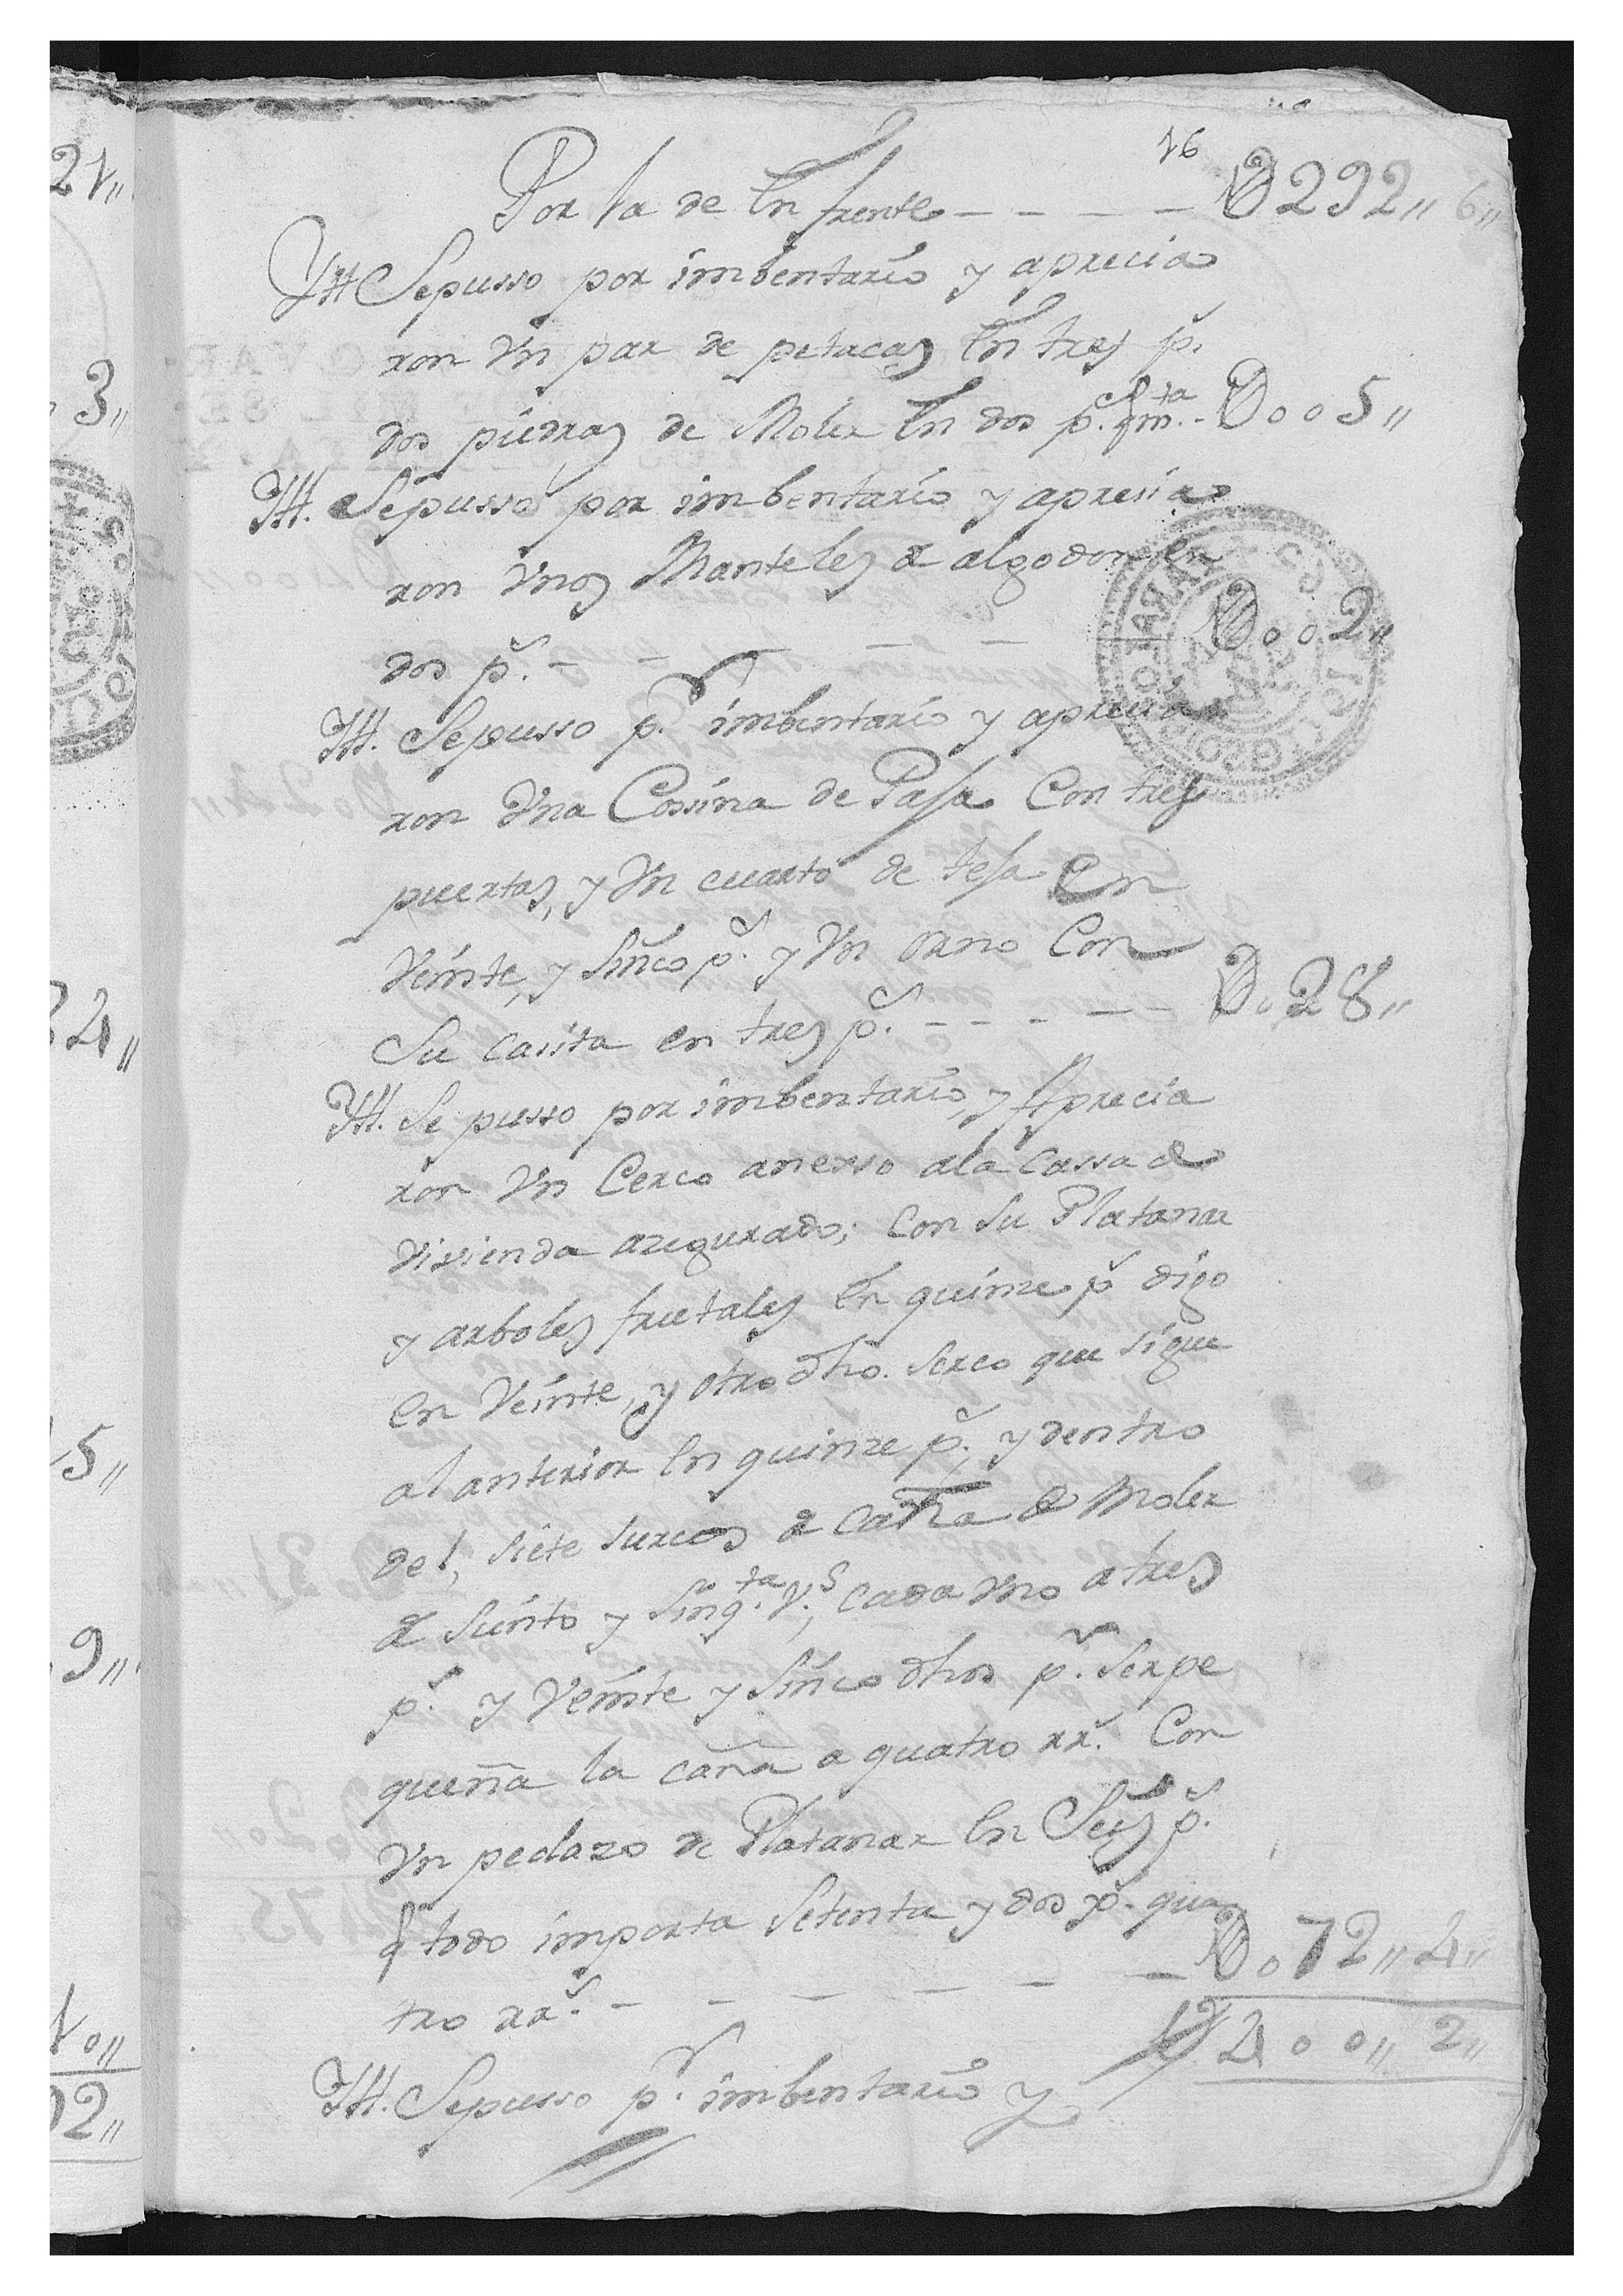 16
Por la de En frente - - - - D292,, 6,,
Ytt Sepusso por imbentario y aprecia
ron Un par de petacas En tres ps.
dos piedras de Moler En dos ps. ymta. - D005,,
Ytt. Sepusso por imbentario y apresia
ron Unos Manteles de algodon en
dos ps. - - - - - D002,,
Ytt. Sepusso pr. imbentario y aprecia
ron Una Cossina de Pasa Con tres
puertas, y Un cuarto de tesa En
Veinte, y Sinco ps. y Un orno Con
Su casita en tres ps. - - - - - D028,,
Ytt. Se pusso por imbentario, y Aprecia
ron Un Cerco anexso ala Cassa de
Vivienda azegurado; Con Su Platanar
y arboles frutales En quinze ps digo
En Veinte, y otro dho. Serco que sigue
al anterior En quinze ps. y dentro
del, Siete Surcos de Caña de Moler
de Siento y Sinqta. vs., Cada Uno a tres
ps. y Veinte y Sinco dhos pr. Ser pe
queña la caña a quatro rrs. Con
Un pedazo de Platanar En Seis ps.
q todo importa Setenta y dos ps. qua
tro rrs. - - - - - - D072,, 4,,
D400,, 2,,
Ytt. Sepusso pr. imbentario y
21,,
3,,
24,,
15,,
9,,
10,,
02,,